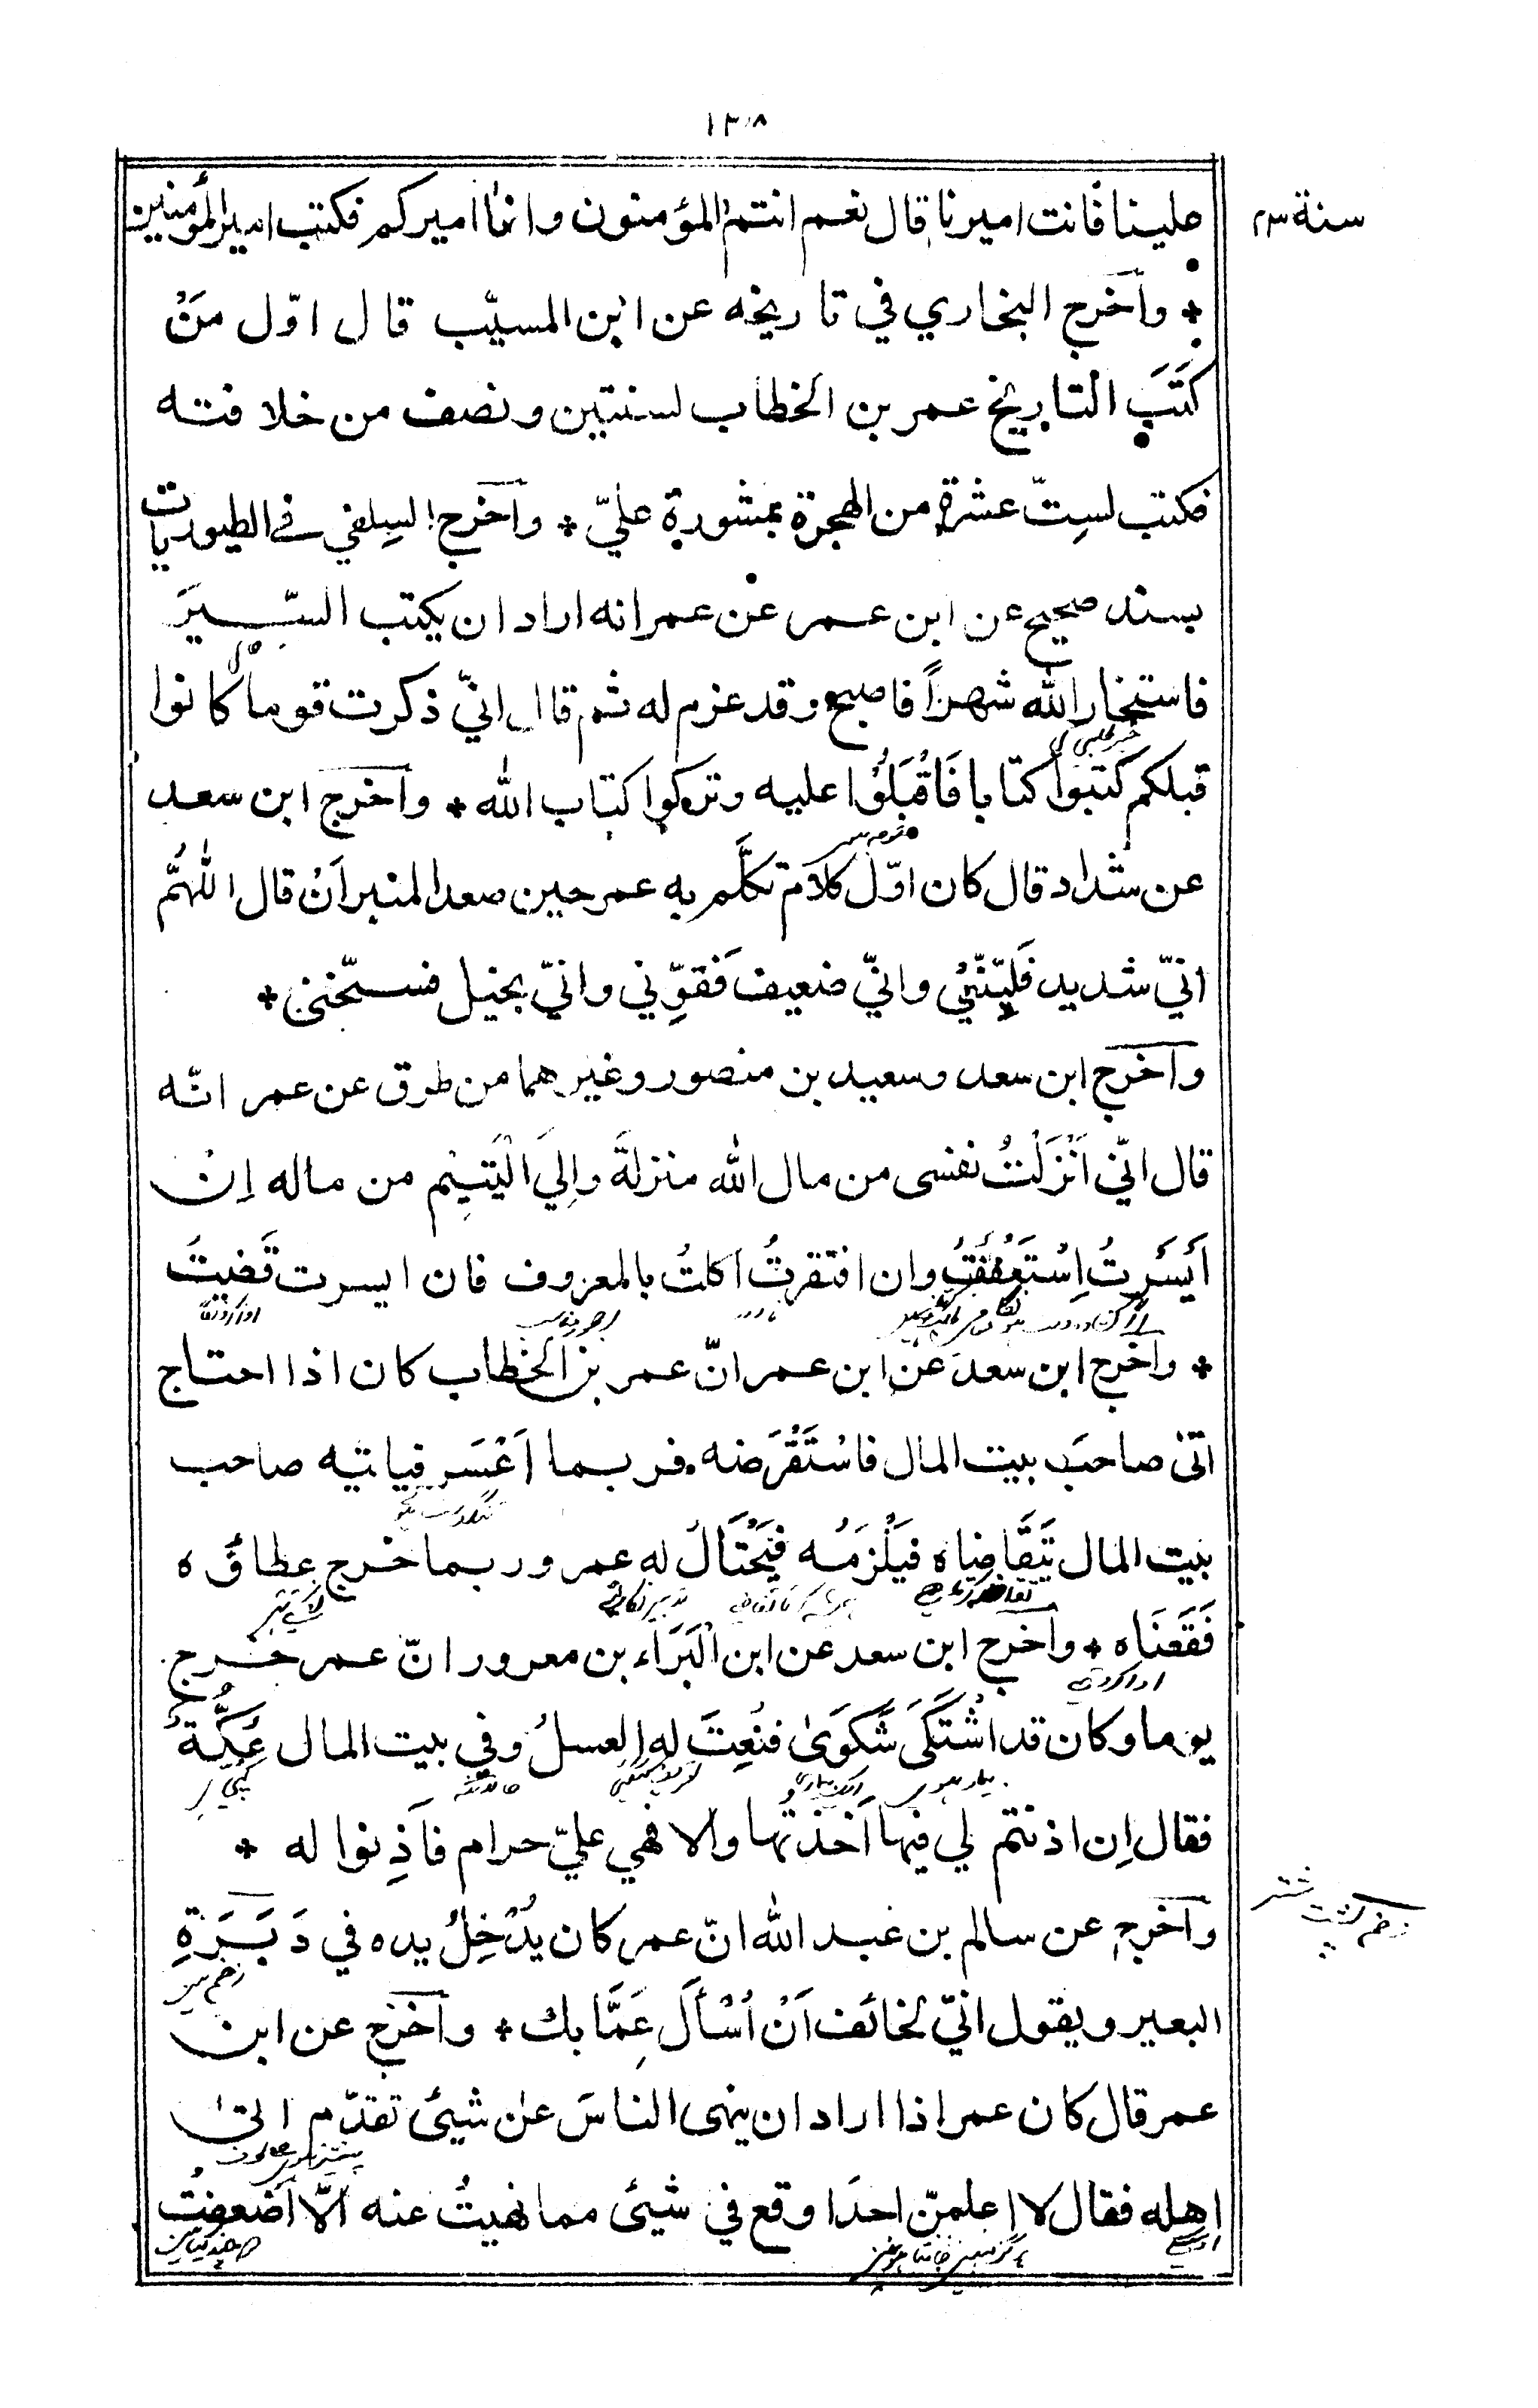 ١٣٨
علينا فانت اميرنا قال نعم انتم المؤمنون وانا اميركم فكتب امير المؤمنين
* واخرج البخاري في تاريخه عن ابن المسيّب قال اوّل مَنْ
كَتَبَ التاريخ عمر بن الخطاب لسنتين ونصف من خلافته
فكتب لسِتّ عشرة من الهجرة بمشورة عليّ * واخرج السِلفي في الطيوريات
بسند صحيح عن ابن عمر عن عمر انه اراد ان يكتب السِّيَرَ
فاستخار الله شهرًا فاصبح وقد عزم له ثم قال انّي ذكرت قوما كانوا
قبلكم كتبوا كتابا فَاَقْبَلُوْا عليه وتركوا كتاب الله * واخرج ابن سعد
عن شداد قال كان اوّل كلام تكلَّم به عمر حين صعد المنبر اَنْ قال اللهُمَّ
انّي شديد فَلَيِّنّيْ وانّي ضعيف فَقَوِّني وانّي بخيل فسخّني *
واخرج ابن سعد وسعيد بن منصور وغيرهما من طرق عن عمر انّه
قال انّي اَنْزَلْتُ نفسى من مال الله منزلةَ والِي الْيَتِيْم من ماله اِنْ
اَيْسَرتُ اِسْتَعْفَفْتُ وان افتقرتُ اكلتُ بالمعروف فان ايسرت قَضيتُ
* واخرج ابن سعد عن ابن عمر انّ عمر بن الخطاب كان اذا احتاج
اتىٰ صاحبَ بيت المال فاسْتَقْرَضه فربما اَعْسَر فياتيه صاحب
بيت المال يَتَقَاضاه فيَلْزَمُه فيَحْتَالُ له عمر وربما خرج عطاؤه
فَقَضَاه * واخرج ابن سعد عن ابن الْبَرَاء بن معرور انّ عمر خرج
يوما وكان قد اشْتَكَى شَكْوَىٰ فنُعِتَ له العسلُ وفي بيت المال عُكَّةٌ
فقال اِن اذنتم لي فيها اَخذتها والا فهي عليّ حرام فاَذِنوا له *
واخرج عن سالم بن عبد الله انّ عمر كان يُدْخِلُ يده في دَبَرَةِ
البعير ويقول انّي لخائف اَنْ اُسْأَلَ عَمَّا بك * واخرج عن ابن
عمر قال كان عمر اذا اراد ان ينهى الناسَ عن شيئ تقدّم الىٰ
اهله فقال لا اعلمنّ احدَا وقع في شيئ مما نهيتُ عنه الّا اضعفتُ
سنة ٢٣